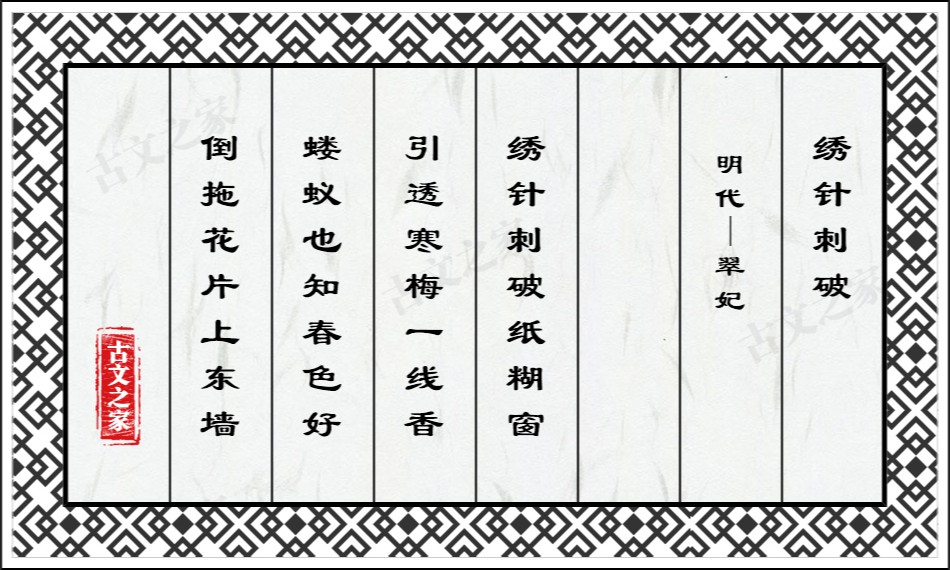 绣针刺破
明代—翠妃
绣针刺破纸糊窗
引透寒梅一线香
蝼蚁也知春色好
倒拖花片上东墙
古文之家
古文之家
古文之家
古文之家